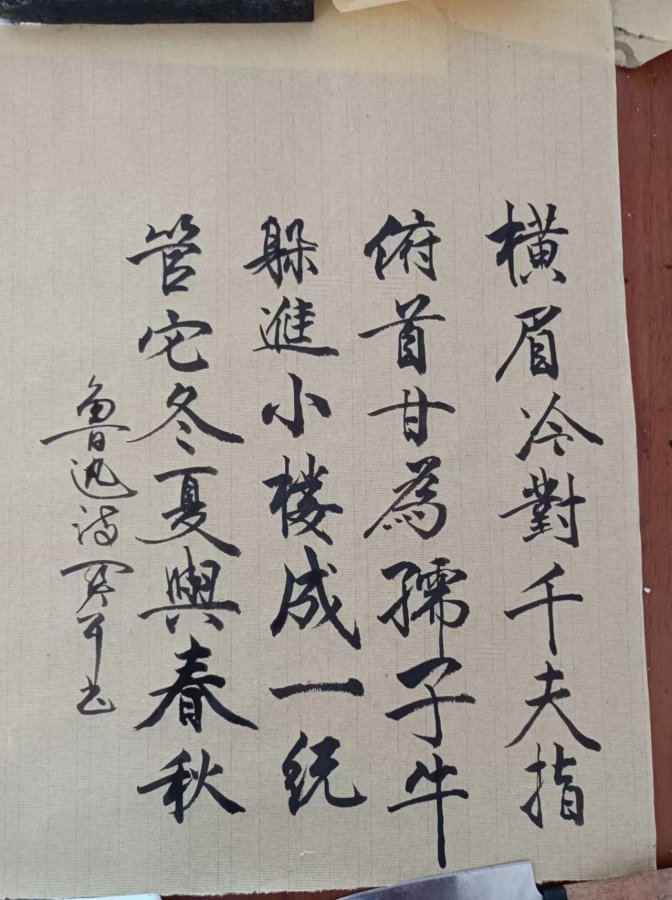 橫眉冷對千夫指
俯首甘為孺子牛
躲進小楼成一统
管它冬夏與春秋
魯迅诗
书